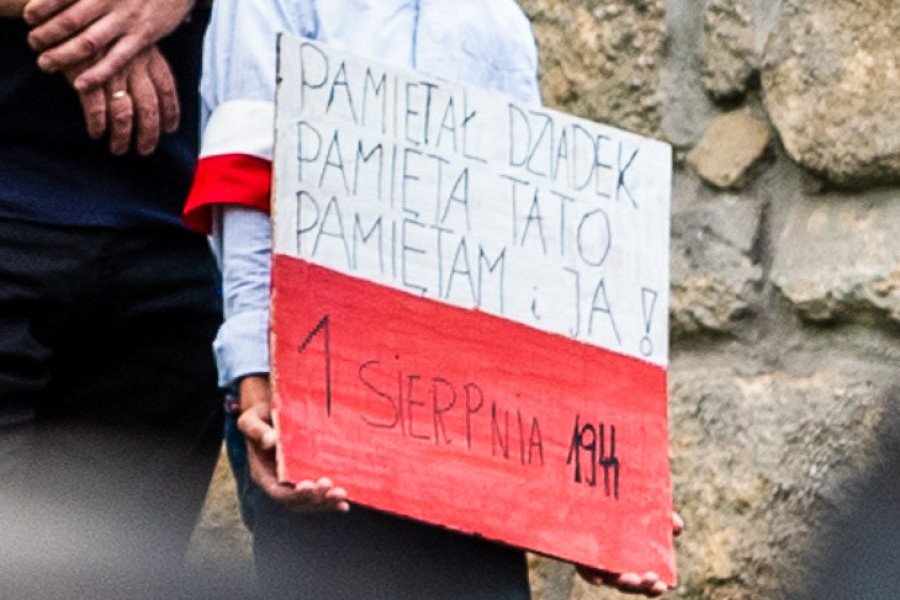 PAMIĘTAŁ DZIADEK
PAMIĘTA TATO
PAMIĘTAM i JA!
1 SiERPNiA 1944